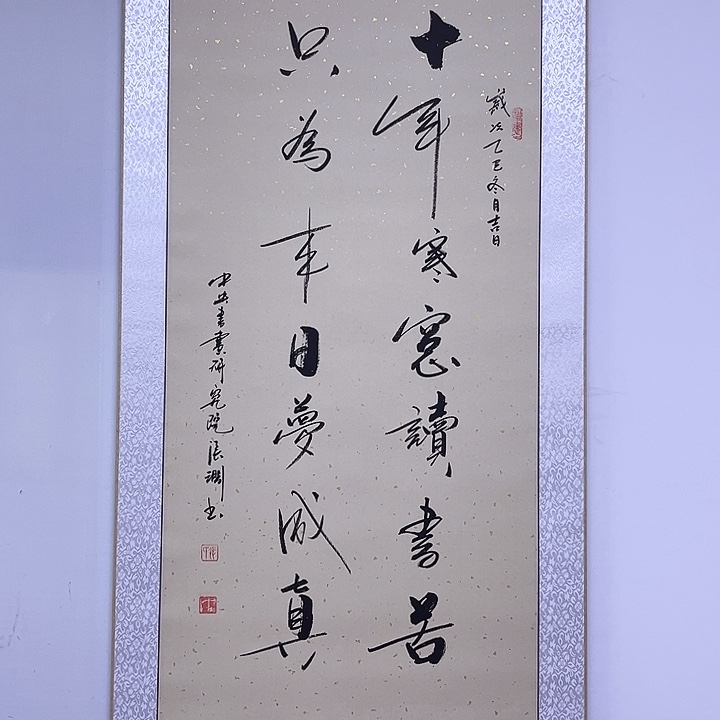 歲次乙巳冬月吉日
十年寒窻讀書苦
只為來日夢成真
中央書畫研究院張渊书